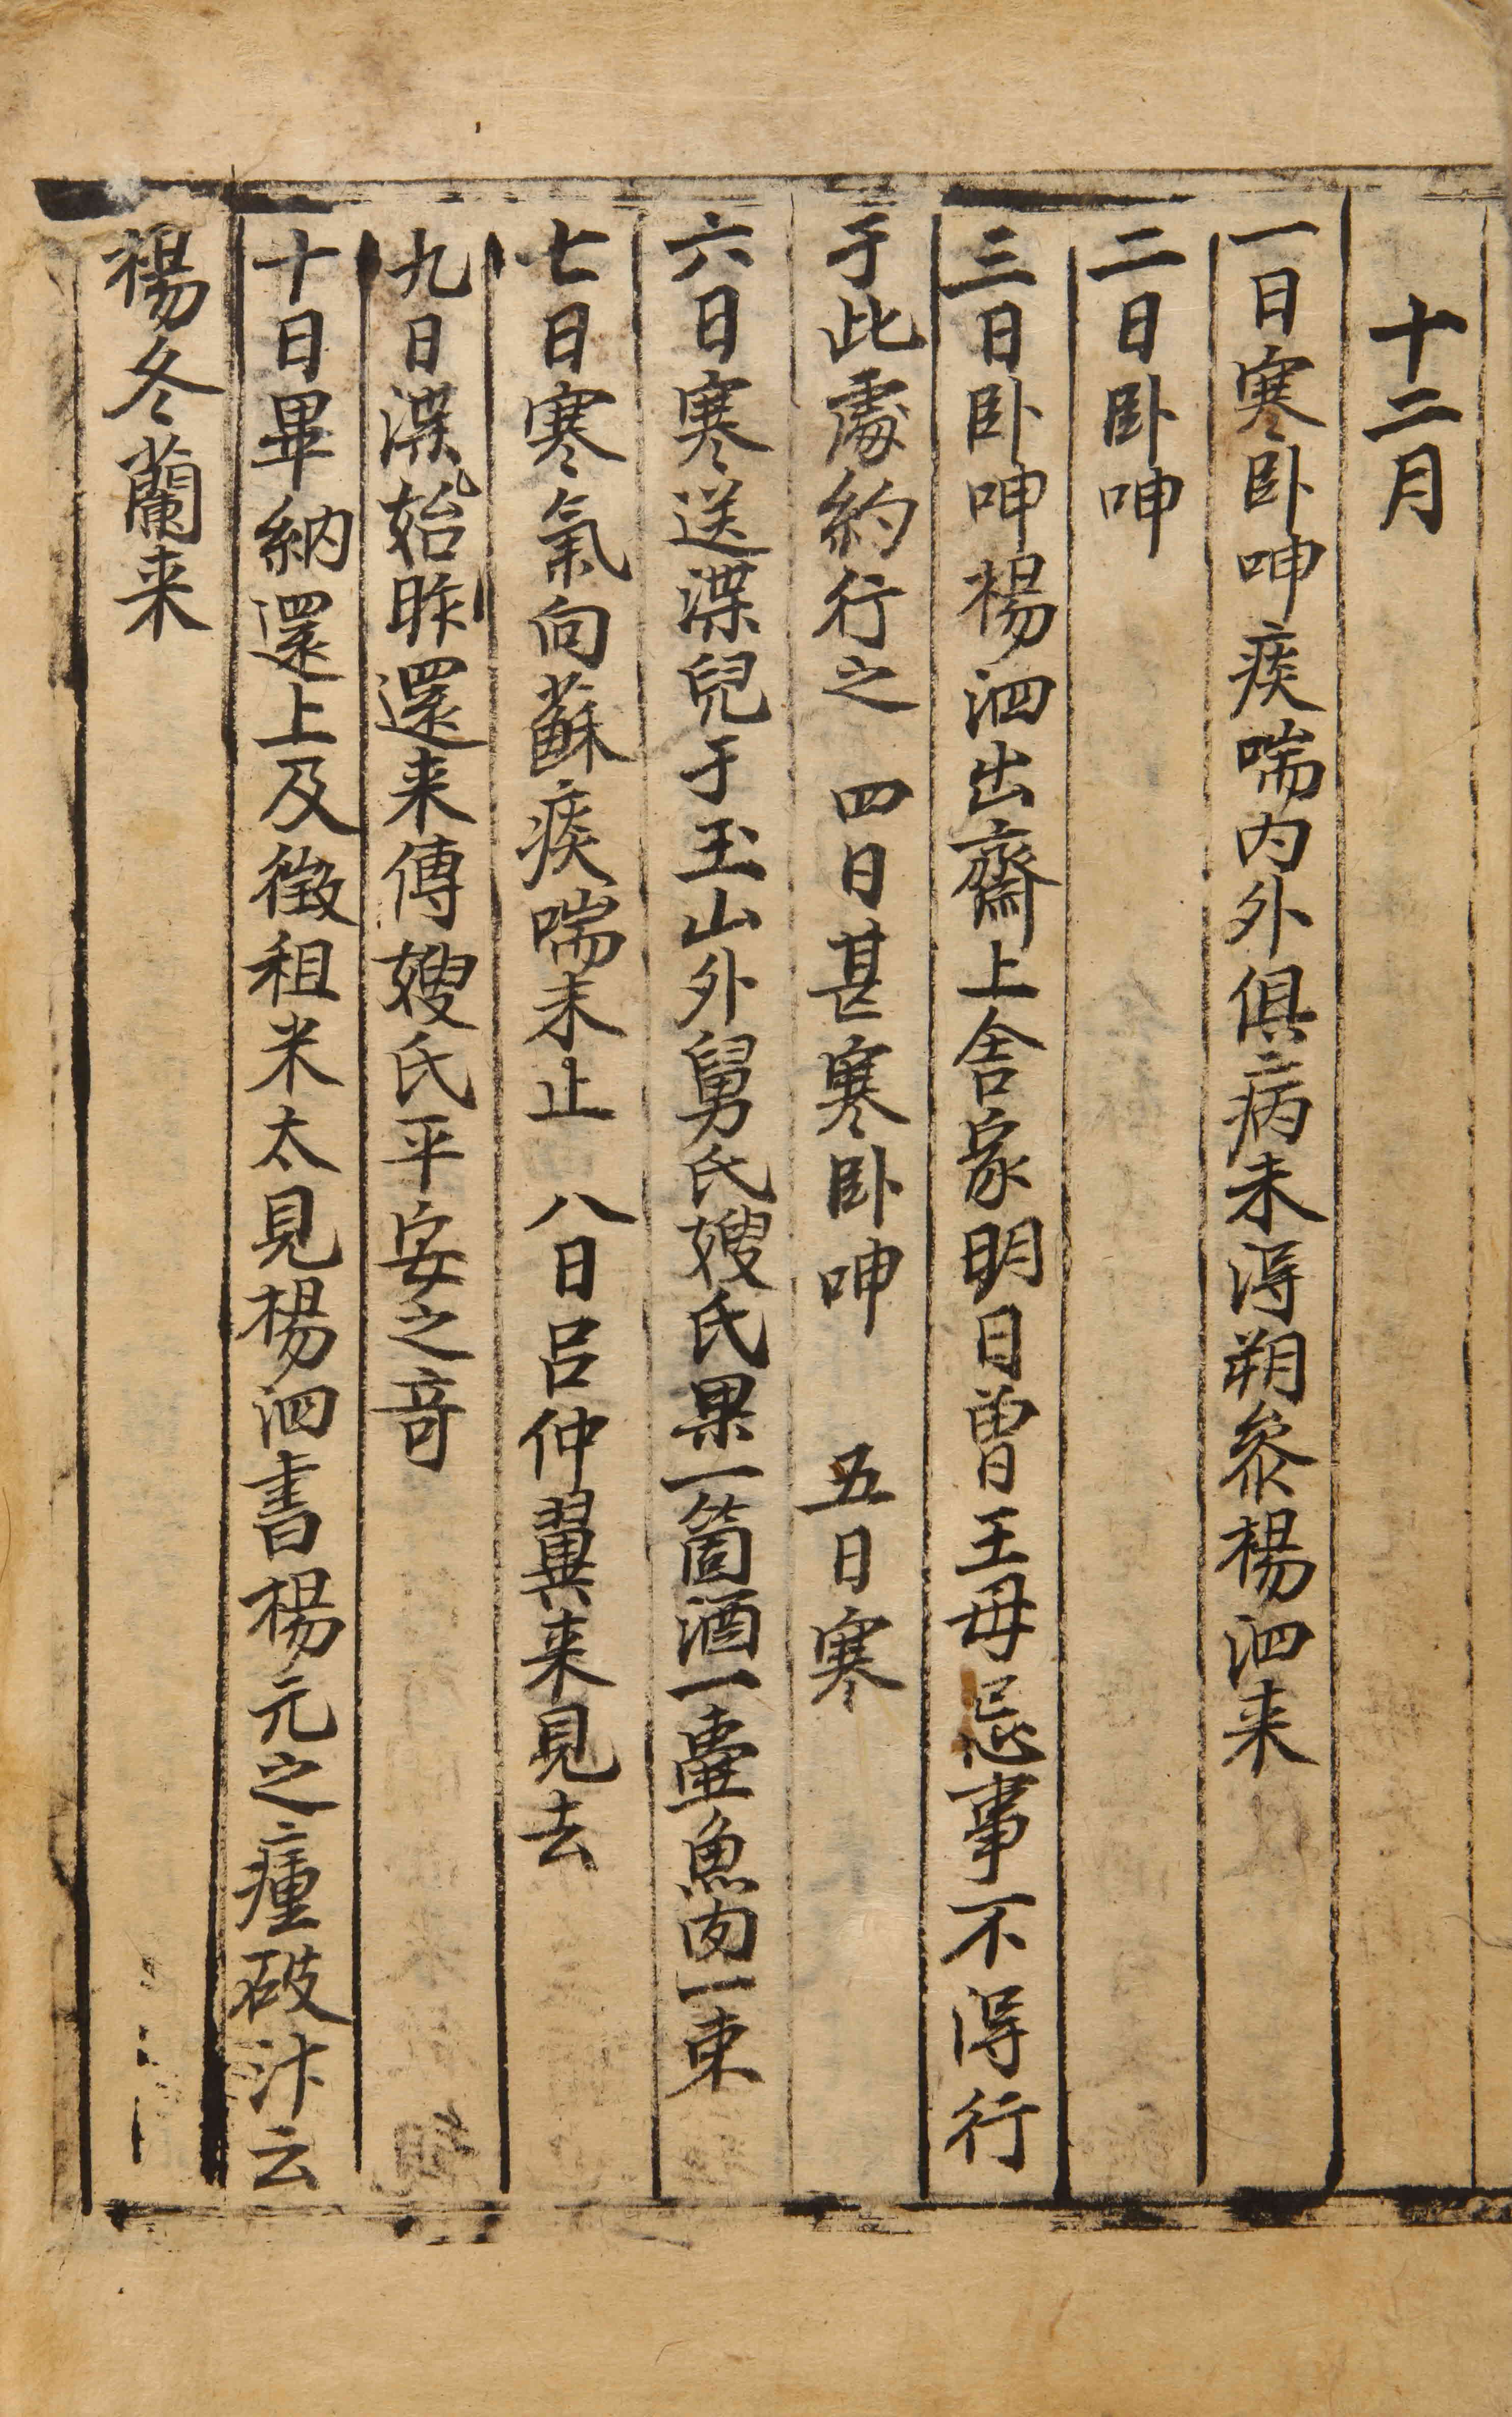 十二月
一日寒卧呻痰喘内外俱病未得朔叅楊泗来
二日卧呻
三日卧呻楊泗出齋上舍家明日曾王母忌事不得行
于此處約行之 四日甚寒卧呻 五日寒
六日寒送渫兒于玉山外舅氏嫂氏果一箇酒一壷魚肉一束
七日寒氣向蘇痰喘未止 八日吕仲翼来見去
九日渫始昨還来傳嫂氏平安之音
十日畢納還上及徵租米太見楊泗書楊元之瘇破汁云
楊冬蘭来